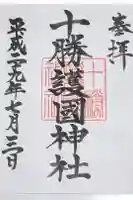 奉拝
十勝護國神社
平成二九年七月三日